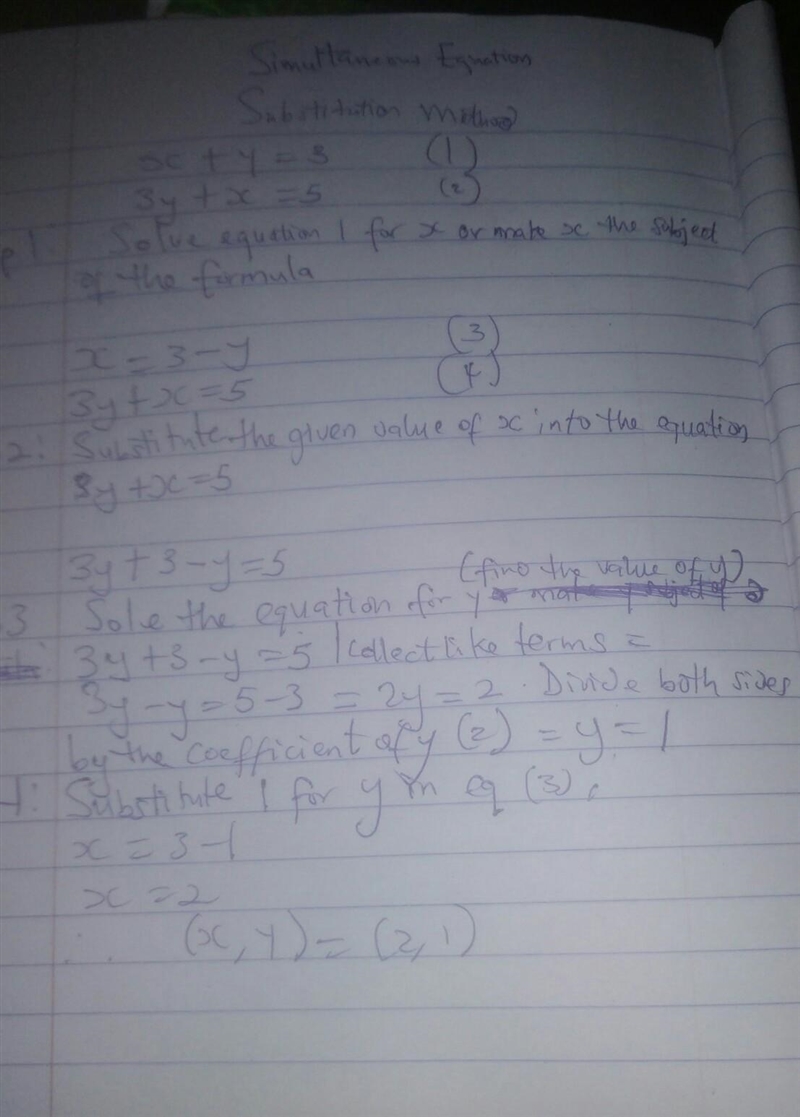 Simultaneous Equation
Substitution Method
x + y = 3 (1)
3y + x = 5 (2)
p 1: Solve equation 1 for x or make x the subject
of the formula
x = 3 - y (3)
3y + x = 5 (4)
2: Substitute the given value of x into the equation
3y + x = 5
3y + 3 - y = 5
(find the value of y)
3 Sole the equation for y
3y + 3 - y = 5 / Collect like terms =
3y - y = 5 - 3 = 2y = 2. Divide both sides
by the coefficient of y (2) = y = 1
4: Substitute 1 for y in eq (3).
x = 3 - 1
x = 2
∴ (x, y) = (2, 1)